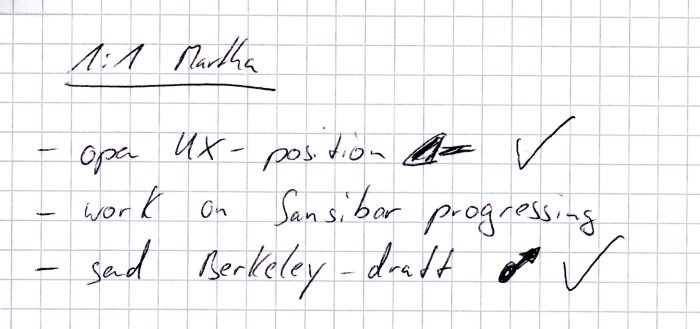 1:1 Martha
- open UX-position ✓
- work on Sansibar progressing
- send Berkeley-draft ✓